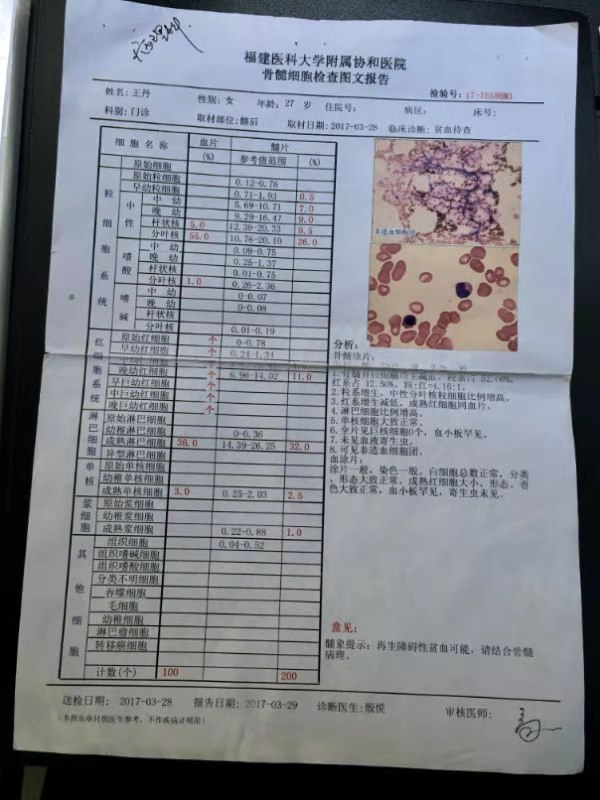 福建医科大学附属协和医院
骨髓细胞检查图文报告
检验号: 17-1558(BM)
姓名: 王丹 性别: 女 年龄: 27 岁 住院号: 病区: 床号:
科别: 门诊 取材部位: 髂后 取材日期: 2017-03-28 临床诊断: 贫血待查
细胞名称 血片 髓片
(%) 参考值范围 (%)
粒细胞系统
原始细胞
原始粒细胞 0.12-0.76
早幼粒细胞 0.71-1.93 0.5
中性
中幼 5.69-10.71 7.0
晚幼 9.29-16.47 9.0
杆状核 5.0 12.39-20.33 9.5
分叶核 55.0 10.76-20.10 26.0
嗜酸
中幼 0.09-0.75
晚幼 0.25-1.37
杆状核 0.01-0.75
分叶核 1.0 0.26-2.36
嗜碱
中幼 0-0.07
晚幼 0-0.08
杆状核
分叶核 0.01-0.19
红细胞系统
原始红细胞 个 0-0.78
早幼红细胞 个 0.24-1.34
个
晚幼红细胞 个 6.96-14.02 11.0
早巨幼红细胞 个
中巨幼红细胞 个
晚巨幼红细胞 个
淋巴细胞
原始淋巴细胞
幼稚淋巴细胞 0-0.36
成熟淋巴细胞 36.0 14.39-26.25 32.0
异型淋巴细胞
单核
原始单核细胞
幼稚单核细胞
成熟单核细胞 3.0 0.25-2.03 2.5
浆细胞
原始浆细胞
幼稚浆细胞
成熟浆细胞 0.22-0.88 1.0
其他细胞
组织细胞 0.04-0.52
组织嗜碱细胞
组织嗜酸细胞
分类不明细胞
吞噬细胞
毛细胞
幼稚细胞
淋巴瘤细胞
转移癌细胞
计数(个) 100 200
非造血细胞团
分析:
骨髓涂片:
红系占 12.50%, 粒:红=4.16:1.
2. 粒系增生, 中性分叶核粒细胞比例增高。
3. 红系增生减低, 成熟红细胞同血片。
4. 淋巴细胞比例增高。
5. 单核细胞大致正常。
6. 全片见巨核细胞0个, 血小板罕见。
7. 未见血液寄生虫。
8. 可见非造血细胞团。
血涂片:
涂片一般, 染色一般, 白细胞总数正常, 分类
, 形态大致正常。成熟红细胞大小、形态、着
色大致正常, 血小板罕见, 寄生虫未见。
意见:
髓象提示: 再生障碍性贫血可能, 请结合骨髓
病理。
送检日期: 2017-03-28 报告日期: 2017-03-29 诊断医生: 殷悦 审核医师:
(本报告单只供医生参考, 不作疾病证明用)